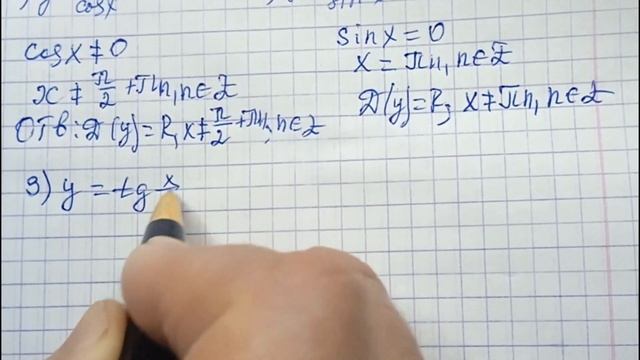 cosx
cosx ≠ 0
x ≠ π/2 + πn, n∈Z
Отв: D(y) = R, x ≠ π/2 + πn, n∈Z
sinx = 0
x = πn, n∈Z
D(y) = R, x ≠ πn, n∈Z
3) y = tg x